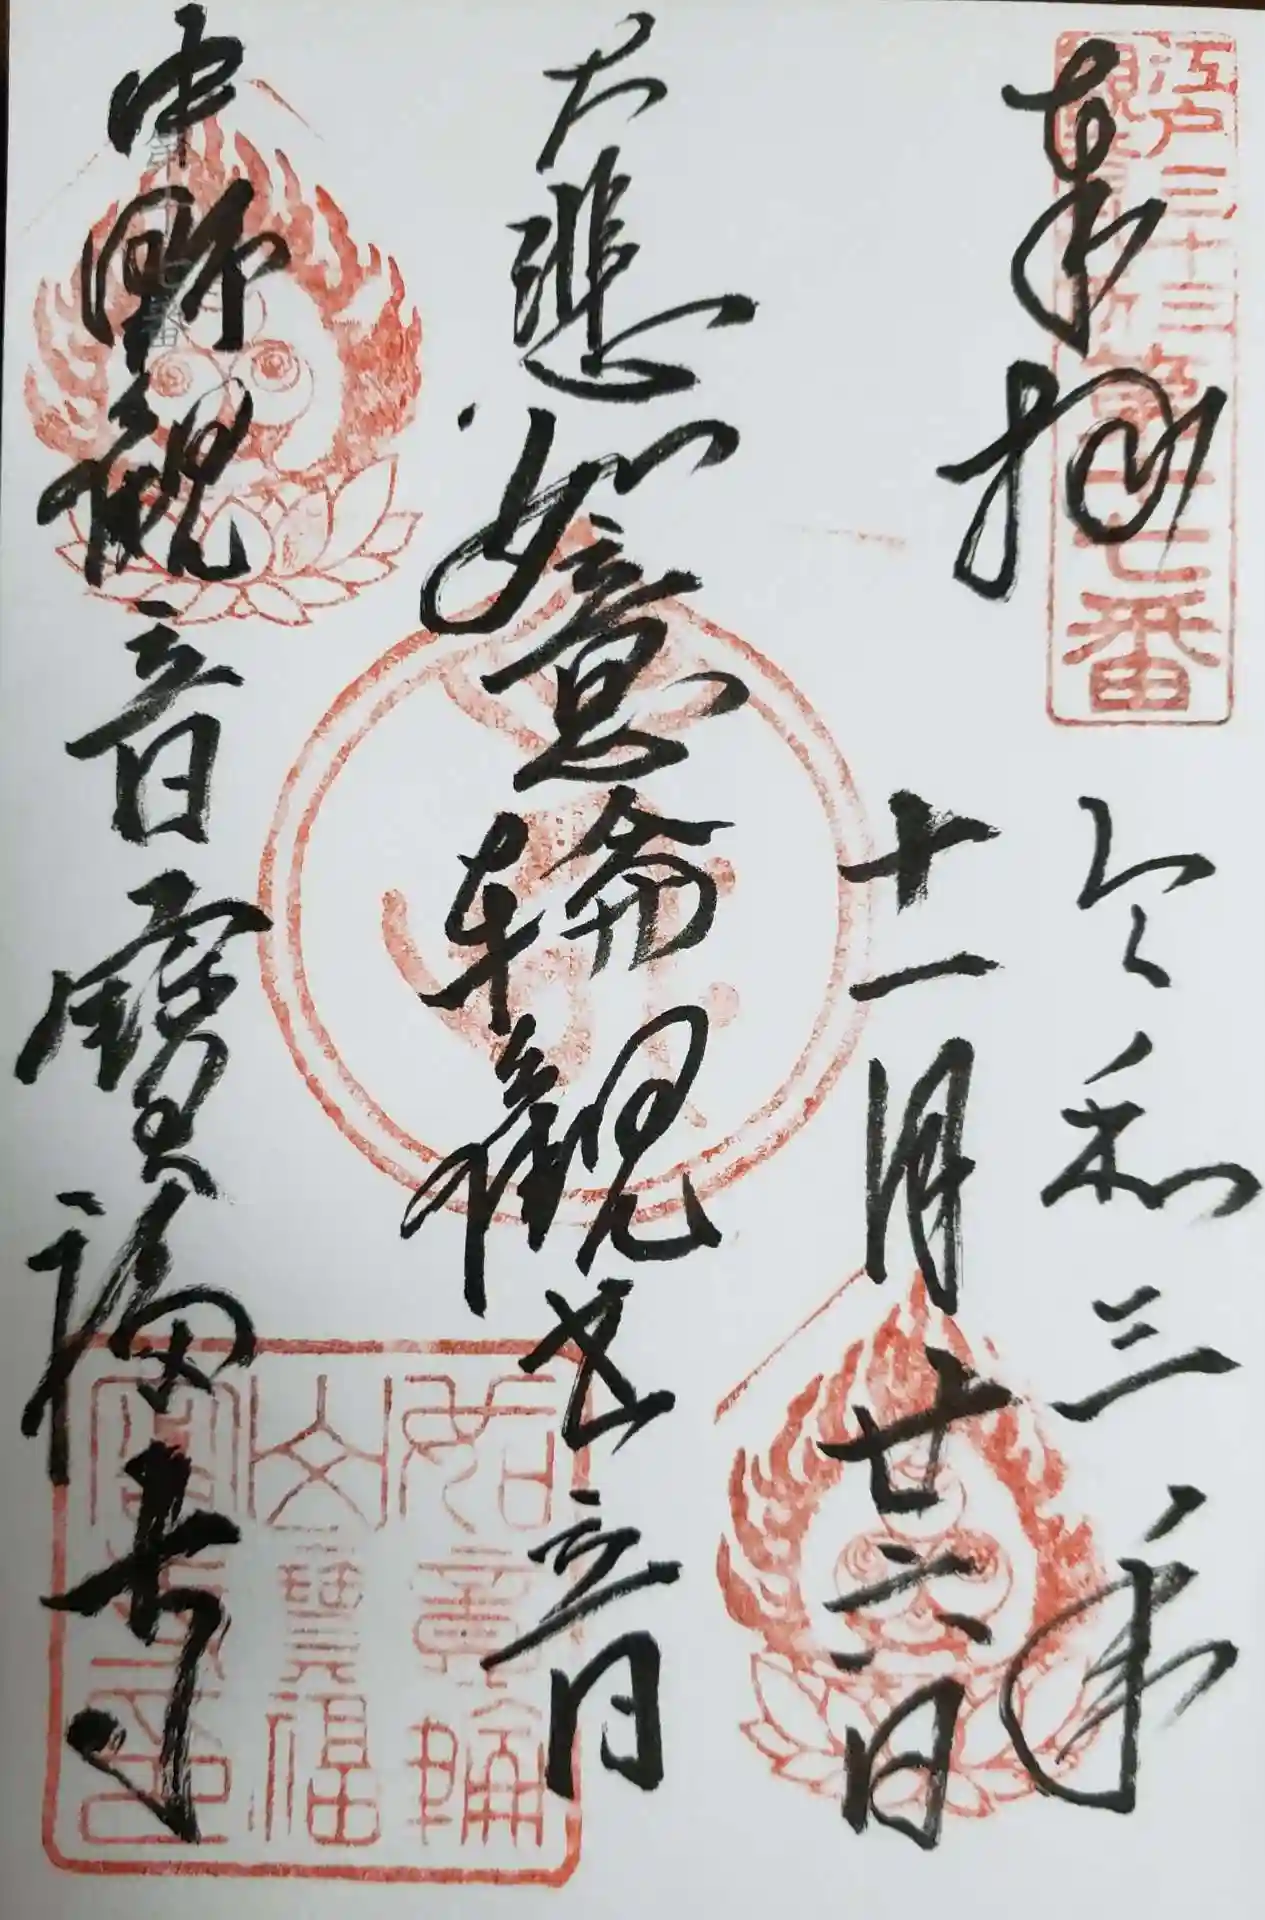 奉拝
令和三年
十一月廿六日
大悲如意輪観世音
中野観音寶福寺
江戸三十三
観音札所第十七番
第十七番
如意輪
山寶福
寺印